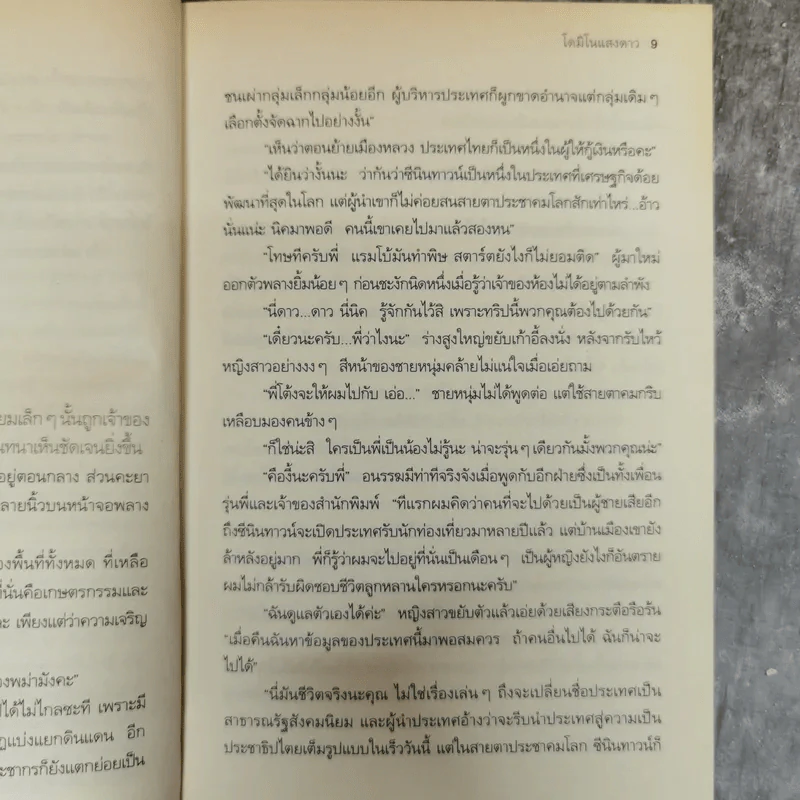 ยมเล็ก ๆ นั้นถูกเจ้าของ
นทนาเห็นชัดเจนยิ่งขึ้น
อยู่ตอนกลาง ส่วนคะยา
ลายนิ้วบนหน้าจอพลาง
องพื้นที่ทั้งหมด ที่เหลือ
ที่นั่นคือเกษตรกรรมและ
ะ เพียงแต่ว่าความเจริญ
องพม่ามังคะ”
ปได้ไม่ไกลซะที เพราะมี
ฏแบ่งแยกดินแดน อีก
ะชากรก็ยังแตกย่อยเป็น
โดมิโนแสงดาว 9
ชนเผ่ากลุ่มเล็กกลุ่มน้อยอีก ผู้บริหารประเทศก็ผูกขาดอำนาจแต่กลุ่มเดิม ๆ
เลือกตั้งจัดฉากไปอย่างงั้น”
“เห็นว่าตอนย้ายเมืองหลวง ประเทศไทยก็เป็นหนึ่งในผู้ให้กู้เงินหรือคะ”
“ได้ยินว่างั้นนะ ว่ากันว่าซีนินทาวน์เป็นหนึ่งในประเทศที่เศรษฐกิจด้อย
พัฒนาที่สุดในโลก แต่ผู้นำเขาก็ไม่ค่อยสนสายตาประชาคมโลกสักเท่าไหร่...อ้าว
นั่นแน่ะ นิคมาพอดี คนนี้เขาเคยไปมาแล้วสองหน”
“โทษทีครับพี่ แรมโบ้มันทำพิษ สตาร์ตยังไงก็ไม่ยอมติด” ผู้มาใหม่
ออกตัวพลางยิ้มน้อย ๆ ก่อนชะงักนิดหนึ่งเมื่อรู้ว่าเจ้าของห้องไม่ได้อยู่ตามลำพัง
“นี่ดาว...ดาว นี่นิค รู้จักกันไว้สิ เพราะทริปนี้พวกคุณต้องไปด้วยกัน”
“เดี๋ยวนะครับ...พี่ว่าไงนะ” ร่างสูงใหญ่ขยับเก้าอี้ลงนั่ง หลังจากรับไหว้
หญิงสาวอย่างงง ๆ สีหน้าของชายหนุ่มคล้ายไม่แน่ใจเมื่อเอ่ยถาม
“พี่โต้งจะให้ผมไปกับ เอ่อ...” ชายหนุ่มไม่ได้พูดต่อ แต่ใช้สายตาคมกริบ
เหลือบมองคนข้าง ๆ
“ก็ใช่น่ะสิ ใครเป็นพี่เป็นน้องไม่รู้นะ น่าจะรุ่น ๆ เดียวกันมั้งพวกคุณน่ะ”
“คืองี้นะครับพี่” อนรรฆมีท่าทีจริงจังเมื่อพูดกับอีกฝ่ายซึ่งเป็นทั้งเพื่อน
รุ่นพี่และเจ้าของสำนักพิมพ์ “ทีแรกผมคิดว่าคนที่จะไปด้วยเป็นผู้ชายเสียอีก
ถึงซีนินทาวน์จะเปิดประเทศรับนักท่องเที่ยวมาหลายปีแล้ว แต่บ้านเมืองเขายัง
ล้าหลังอยู่มาก พี่ก็รู้ว่าผมจะไปอยู่ที่นั่นเป็นเดือน ๆ เป็นผู้หญิงยังไงก็อันตราย
ผมไม่กล้ารับผิดชอบชีวิตลูกหลานใครหรอกนะครับ”
“ฉันดูแลตัวเองได้ค่ะ” หญิงสาวขยับตัวแล้วเอ่ยด้วยเสียงกระตือรือร้น
“เมื่อคืนฉันหาข้อมูลของประเทศนี้มาพอสมควร ถ้าคนอื่นไปได้ ฉันก็น่าจะ
ไปได้”
“นี่มันชีวิตจริงนะคุณ ไม่ใช่เรื่องเล่น ๆ ถึงจะเปลี่ยนชื่อประเทศเป็น
สาธารณรัฐสังคมนิยม และผู้นำประเทศอ้างว่าจะรีบนำประเทศสู่ความเป็น
ประชาธิปไตยเต็มรูปแบบในเร็ววันนี้ แต่ในสายตาประชาคมโลก ซีนินทาวน์ก็